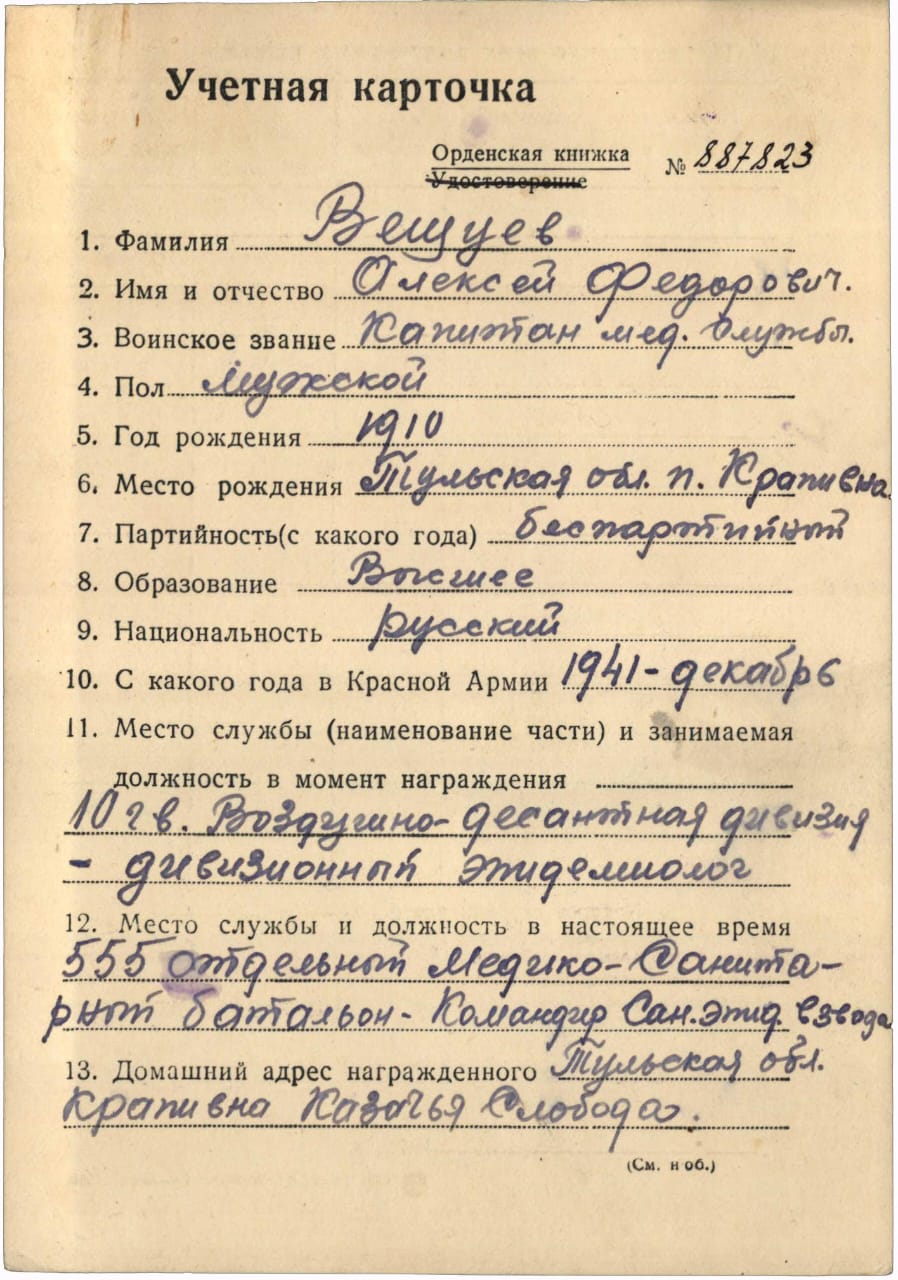 Учетная карточка
Орденская книжка № 887823
Удостоверение
1. Фамилия Вещуев
2. Имя и отчество Алексей Федорович.
3. Воинское звание Капитан мед. службы.
4. Пол Мужской
5. Год рождения 1910
6. Место рождения Тульская обл. п. Крапивна
7. Партийность(с какого года) беспартийный
8. Образование Высшее
9. Национальность русский
10. С какого года в Красной Армии 1941-декабрь
11. Место службы (наименование части) и занимаемая
должность в момент награждения
10 гв. Воздушно-десантная дивизия
- дивизионный эпидемиолог
12. Место службы и должность в настоящее время
555 отдельный Медико-Санита-
рный батальон- Командир Сан.эпид. взвода
13. Домашний адрес награжденного Тульская обл.
Крапивна Казачья Слобода.
(См. н об.)